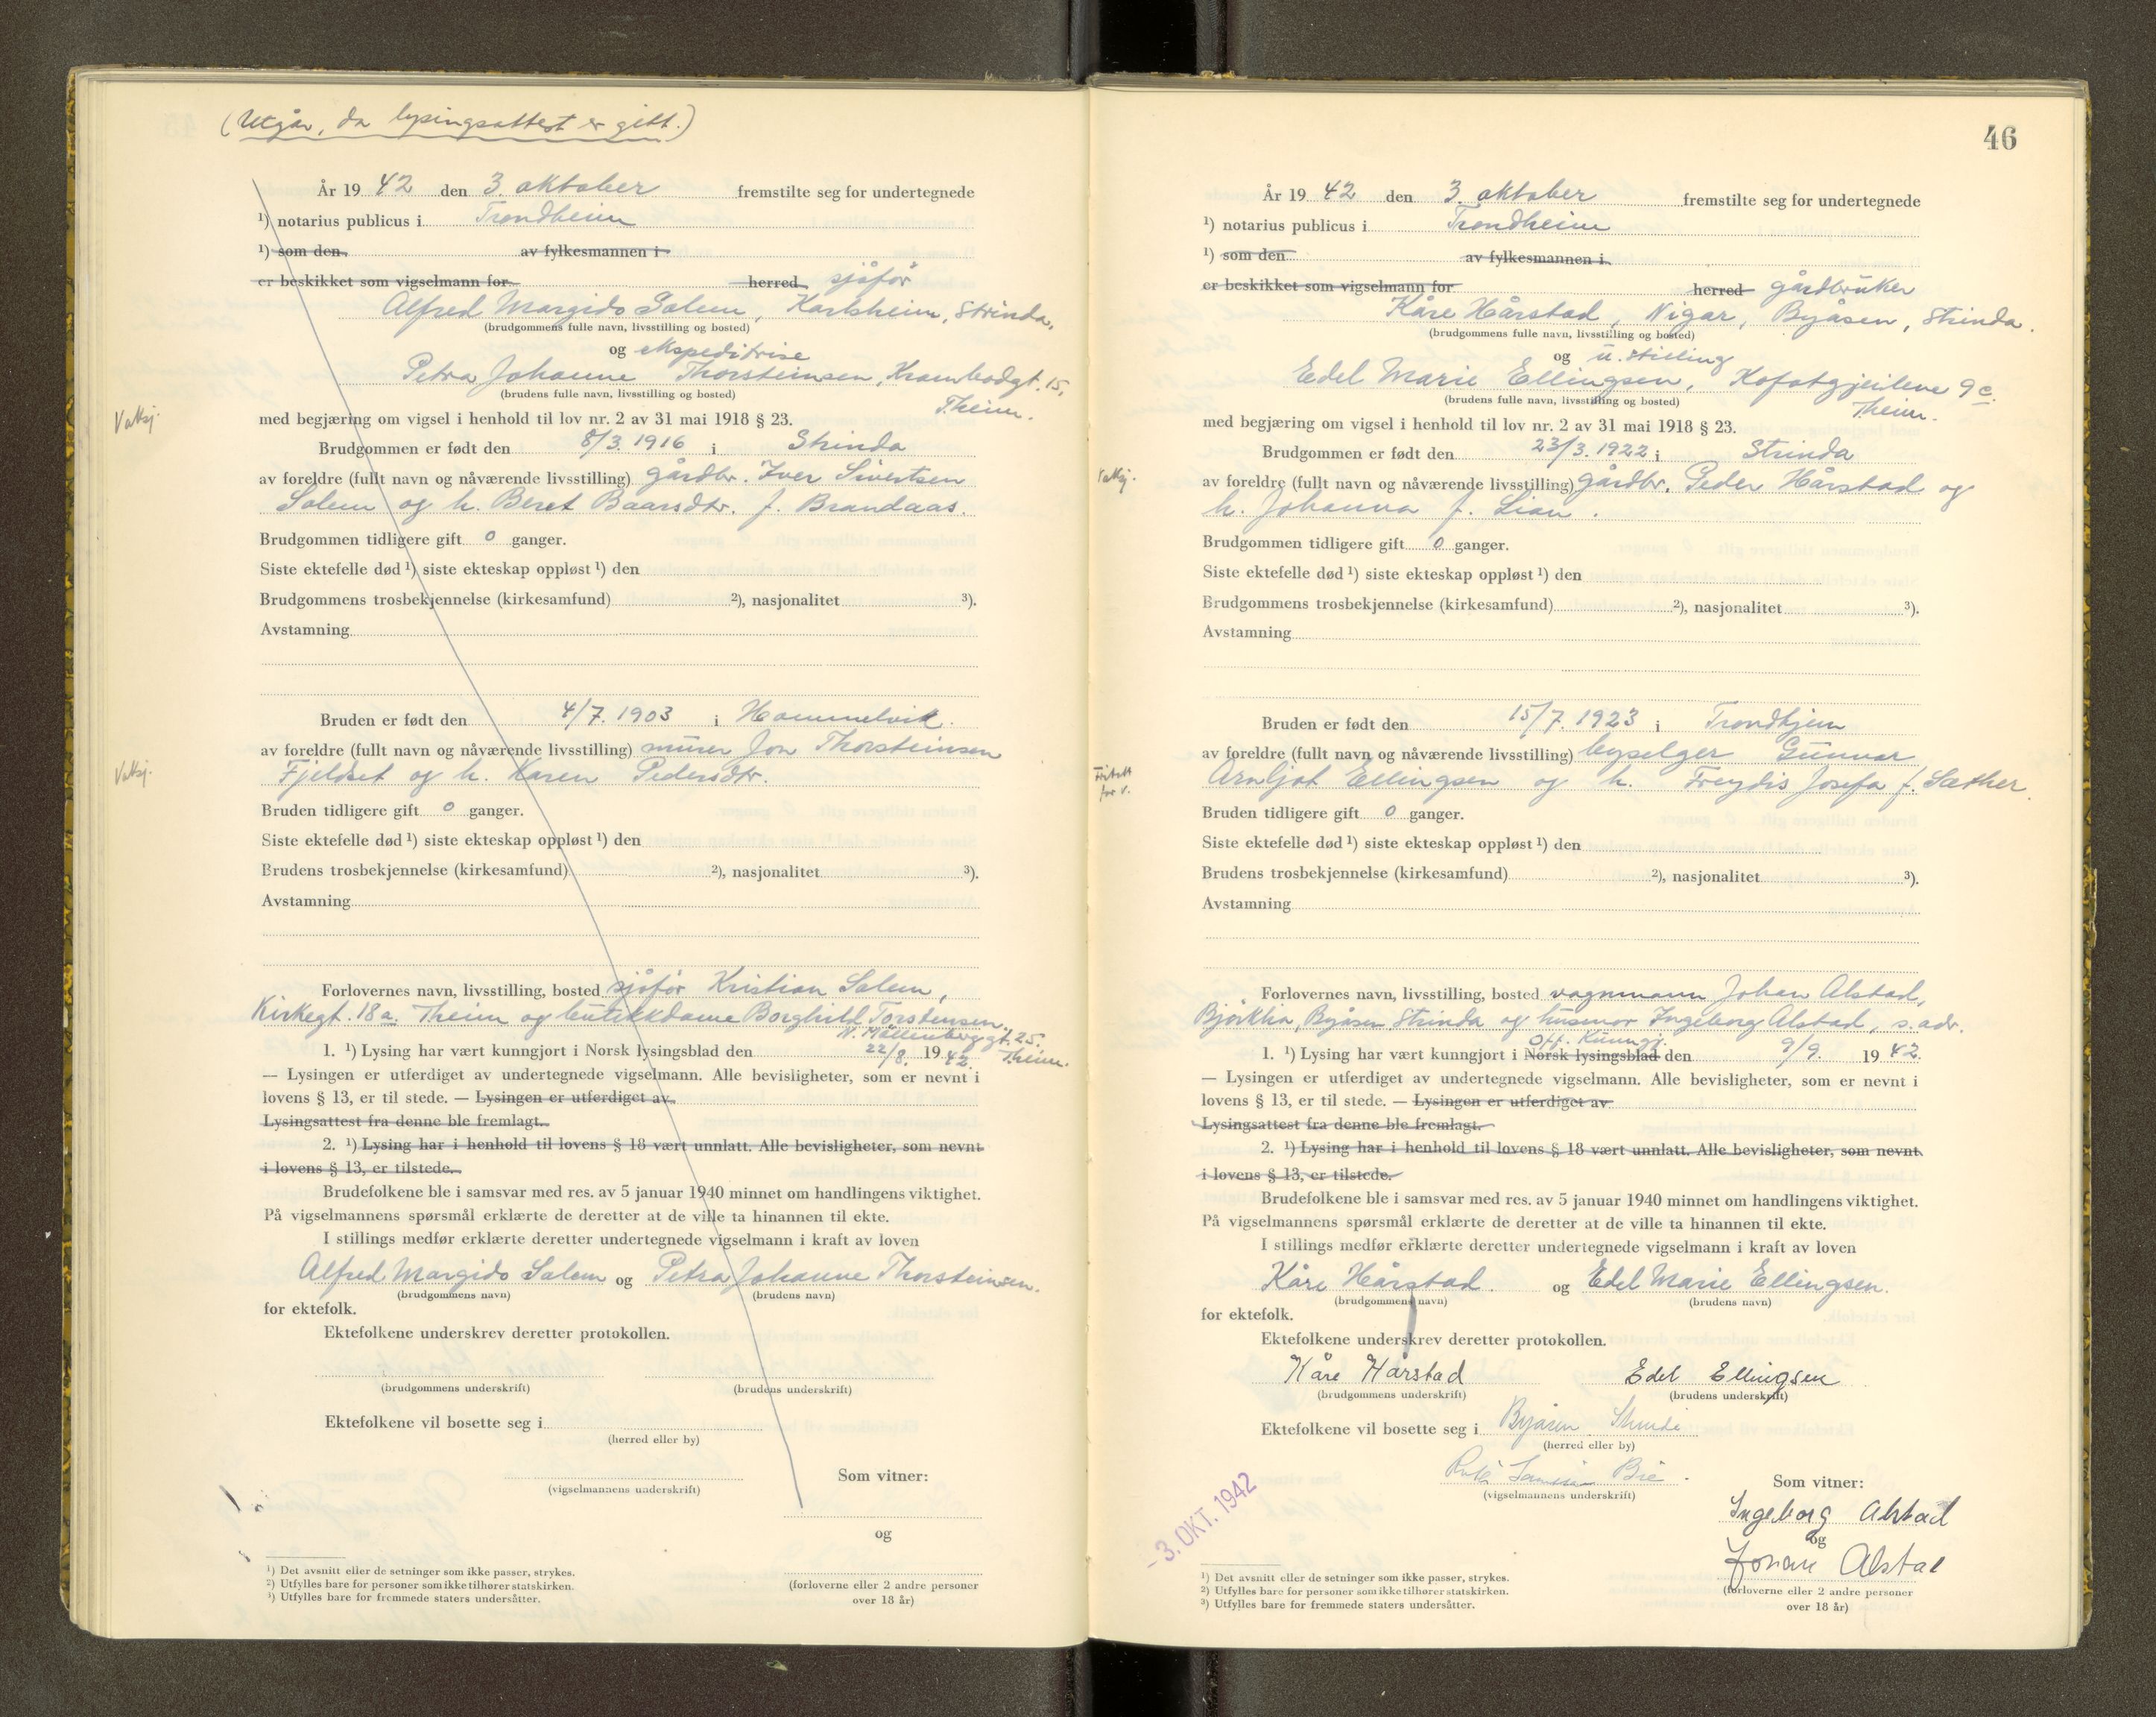 (Utgår, da lysingsattest er gitt.)
År 19 42 den 3. oktober fremstilte seg for undertegnede
¹) notarius publicus i Trondheim
¹) som den av fylkesmannen i
er beskikket som vigselmann for herred sjåfør
Alfred Margido Solem, Karlsheim, Strinda,
(brudgommens fulle navn, livsstilling og bosted)
og ekspeditrise
Petra Johanne Thorsteinsen, Krambodgt. 15,
(brudens fulle navn, livsstilling og bosted)
T.heim.
med begjæring om vigsel i henhold til lov nr. 2 av 31 mai 1918 § 23.
Vaksj.
Brudgommen er født den 8/3. 1916 i Strinda
av foreldre (fullt navn og nåværende livsstilling) gårdbr. Iver Sivertsen
Solem og h. Beret Baarsdtr. f. Brandaas.
Brudgommen tidligere gift 0 ganger.
Siste ektefelle død ¹) siste ekteskap oppløst ¹) den
Brudgommens trosbekjennelse (kirkesamfund) ²), nasjonalitet ³).
Avstamning
Bruden er født den 4/7. 1903 i Hommelvik.
av foreldre (fullt navn og nåværende livsstilling) murer Jon Thorsteinsen
Vaksj.
Fjeldset og h. Karen Pedersdtr.
Bruden tidligere gift 0 ganger.
Siste ektefelle død ¹) siste ekteskap oppløst ¹) den
Brudens trosbekjennelse (kirkesamfund) ²), nasjonalitet ³).
Avstamning
Forlovernes navn, livsstilling, bosted sjåfør Kristian Solem,
Kirkegt. 18a. Theim og butikkdame Borghild Torstensen.
N. Møllenberggt. 25.
1. ¹) Lysing har vært kunngjort i Norsk lysingsblad den 22/8. 19 42. Theim.
— Lysingen er utferdiget av undertegnede vigselmann. Alle bevisligheter, som er nevnt i
lovens § 13, er til stede. — Lysingen er utferdiget av
Lysingsattest fra denne ble fremlagt.
2. ¹) Lysing har i henhold til lovens § 18 vært unnlatt. Alle bevisligheter, som nevnt
i lovens § 13, er tilstede.
Brudefolkene ble i samsvar med res. av 5 januar 1940 minnet om handlingens viktighet.
På vigselmannens spørsmål erklærte de deretter at de ville ta hinannen til ekte.
I stillings medfør erklærte deretter undertegnede vigselmann i kraft av loven
Alfred Margido Solem og Petra Johanne Thorsteinsen.
(brudgommens navn) (brudens navn)
for ektefolk.
Ektefolkene underskrev deretter protokollen.
(brudgommens underskrift) (brudens underskrift)
Ektefolkene vil bosette seg i
(herred eller by)
Som vitner:
(vigselmannens underskrift)
og
¹) Det avsnitt eller de setninger som ikke passer, strykes.
²) Utfylles bare for personer som ikke tilhører statskirken.
³) Utfylles bare for fremmede staters undersåtter.
(forloverne eller 2 andre personer
over 18 år)
46
År 19 42 den 3. oktober fremstilte seg for undertegnede
¹) notarius publicus i Trondheim
¹) som den av fylkesmannen i
er beskikket som vigselmann for herred gårdbruker
Kåre Hårstad, Nigar, Byåsen, Strinda.
(brudgommens fulle navn, livsstilling og bosted)
og u. stilling
Edel Marie Ellingsen, Kofotgjeilene 9c.
(brudens fulle navn, livsstilling og bosted)
Theim.
med begjæring om vigsel i henhold til lov nr. 2 av 31 mai 1918 § 23.
Brudgommen er født den 23/3. 1922 i Strinda
Vaksj.
av foreldre (fullt navn og nåværende livsstilling) gårdbr. Peder Hårstad og
h. Johanna f. Lian.
Brudgommen tidligere gift 0 ganger.
Siste ektefelle død ¹) siste ekteskap oppløst ¹) den
Brudgommens trosbekjennelse (kirkesamfund) ²), nasjonalitet ³).
Avstamning
Bruden er født den 15/7. 1923 i Trondhjem
av foreldre (fullt navn og nåværende livsstilling) byselger Gunnar
Fritatt
for v.
Arnljot Ellingsen og h. Frøydis Josefa f. Sæther.
Bruden tidligere gift 0 ganger.
Siste ektefelle død ¹) siste ekteskap oppløst ¹) den
Brudens trosbekjennelse (kirkesamfund) ²), nasjonalitet ³).
Avstamning
Forlovernes navn, livsstilling, bosted vognmann Johan Alstad,
Bjørklia, Byåsen Strinda og husmor Ingeborg Alstad, s. adr.
Off. Kunngj.
1. ¹) Lysing har vært kunngjort i Norsk lysingsblad den 9/9. 19 42.
— Lysingen er utferdiget av undertegnede vigselmann. Alle bevisligheter, som er nevnt i
lovens § 13, er til stede. — Lysingen er utferdiget av
Lysingsattest fra denne ble fremlagt.
2. ¹) Lysing har i henhold til lovens § 18 vært unnlatt. Alle bevisligheter, som nevnt
i lovens § 13, er tilstede.
Brudefolkene ble i samsvar med res. av 5 januar 1940 minnet om handlingens viktighet.
På vigselmannens spørsmål erklærte de deretter at de ville ta hinannen til ekte.
I stillings medfør erklærte deretter undertegnede vigselmann i kraft av loven
Kåre Hårstad. og Edel Marie Ellingsen.
(brudgommens navn) (brudens navn)
for ektefolk.
Ektefolkene underskrev deretter protokollen.
Kåre Hårstad Edel Ellingsen
(brudgommens underskrift) (brudens underskrift)
Ektefolkene vil bosette seg i Byåsen Strinda
(herred eller by)
Bie.
Som vitner:
(vigselmannens underskrift)
- 3. OKT. 1942
Ingeborg Alstad
og
Johan Alstad
(forloverne eller 2 andre personer
over 18 år)
¹) Det avsnitt eller de setninger som ikke passer, strykes.
²) Utfylles bare for personer som ikke tilhører statskirken.
³) Utfylles bare for fremmede staters undersåtter.